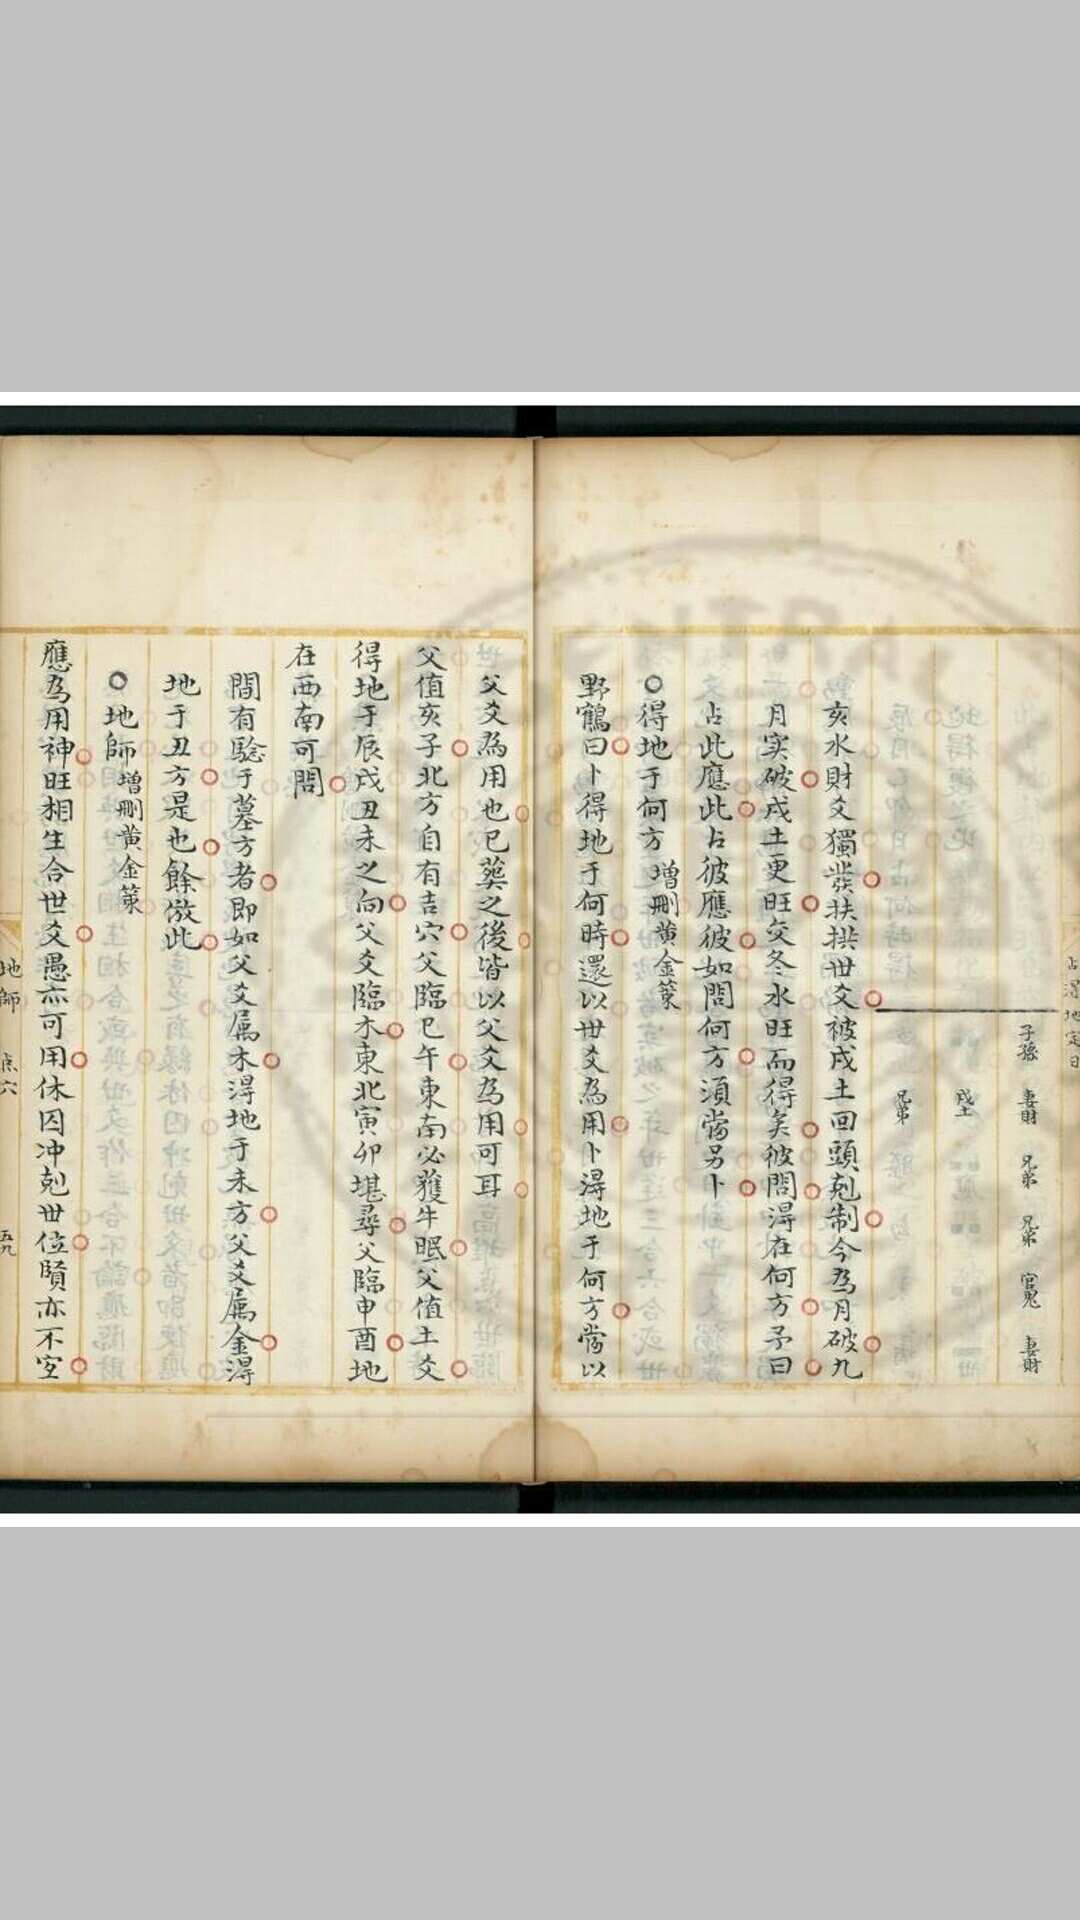 占得地定日
子孫 妻財 兄弟 兄弟 官鬼 妻財
戌土
兄弟
亥水財爻獨發扶拱世爻被戌土回頭剋制今為月破九
月实破戌土更旺交冬水旺而得矣彼問得在何方予曰
占此應此占彼應彼如問何方須當另卜
○得地于何方 增刪黄金策
野鶴曰卜得地于何時還以世爻為用卜得地于何方當以
父爻為用也已葬之後皆以父爻為用可耳
父值亥子北方自有吉穴父臨巳午東南必獲牛眠父值土爻
得地于辰戌丑未之向父爻臨木東北寅卯堪尋父臨申酉地
在西南可問
間有驗于墓方者即如父爻属木得地于未方父爻属金得
地于丑方是也餘倣此
○地師 增刪黄金策
應為用神旺相生合世爻愚亦可用休囚冲剋世位賢亦不宜
地師 五九